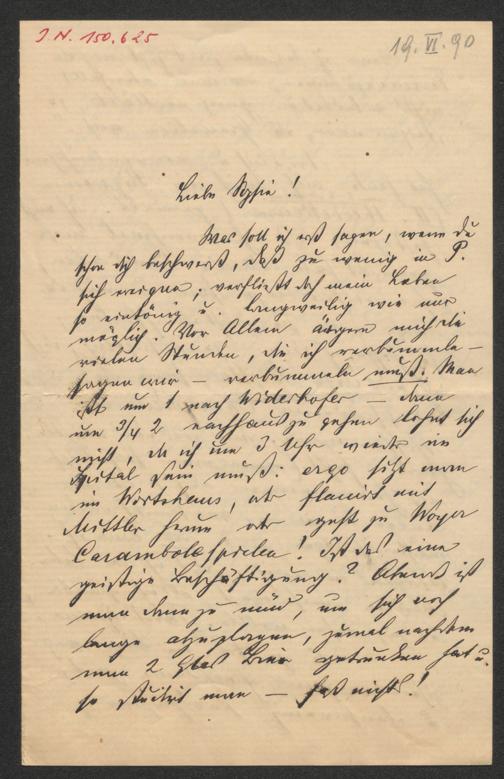 J.N. 150.625
19.VI.90
Liebe Sophie!
Was soll ich erst sagen, wenn du
schon dich beschwerst, daß zu wenig in P.
sich ereigne; verfließt doch mein Leben
so eintönig u. langweilig wie nur
möglich. Vor Allem ärgern mich die
vielen Stunden, die ich verbummle –
sagen wir – verbummeln muß. Man
ißt um 1 nach Widerhofer – dann
um 3/4 2 nachhaus zu gehen lohnt sich
nicht, da ich um 3 Uhr wieder im
Spital sein muß: ergo sitzt man
im Wirtshaus, oder flanirt mit
Mittler herum oder geht zu
Carambolespielen! Ist das eine
geistige Beschäftigung? Abends ist
man dann zu müd, um sich noch
lange abzuplagen, zumal nachdem
man 2 Glas Bier getrunken hat u.
so studirt man – fast nichts!